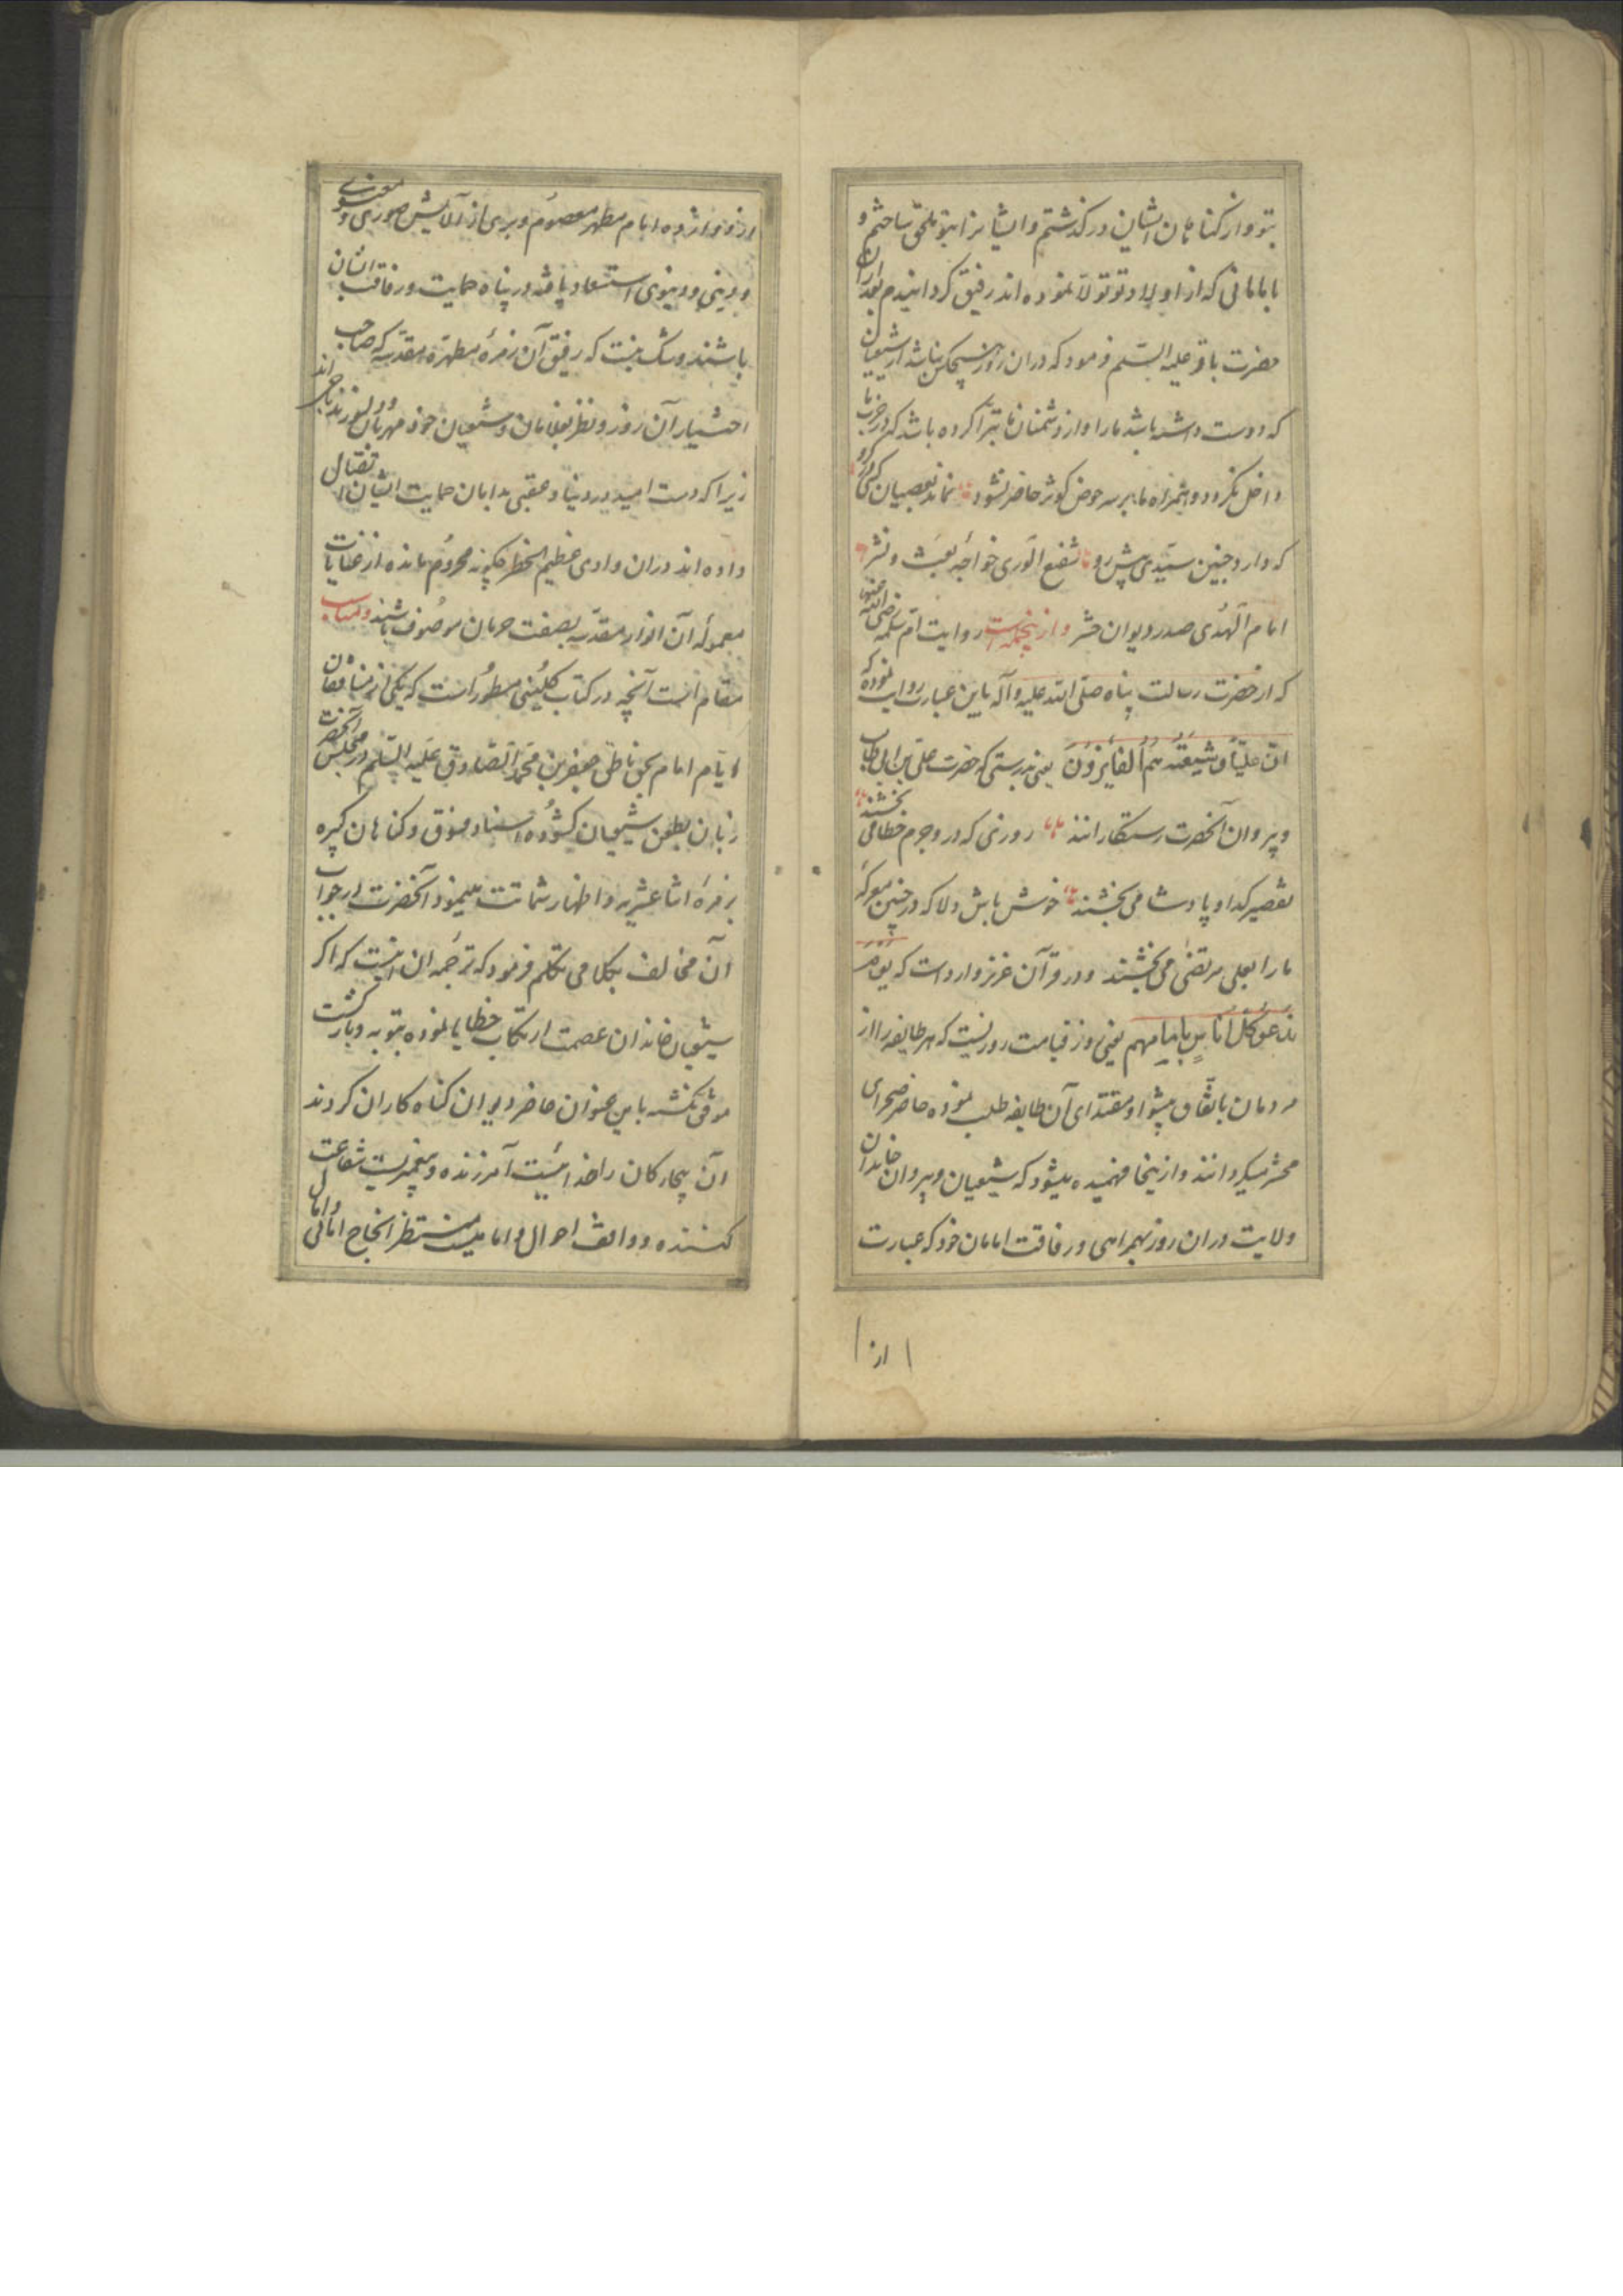 بتو و از کناهان ایشان درکذشتم و ایشانرا بتو ملحق ساختم و
با امامانی که از اولاد تو تولا نموده اند رفیق کردانیدم بعد ازان
حضرت باقر علیه السّلم فرمود که دران روز هیچکس نباشد از شیعیان
که دوست داشته باشد مارا و از دشمنان ما تبرّا کرده باشد که در حزب ما
داخل نکردد و همراه ما بر سر حوض کوثر حاضر نشود نماند بعصیان کسی در کرو
که دارد چنین سیّدی پیش رو شفیع الوری خواجه بعث و نشر
امام الهدی صدر دیوان حشر و ازینجمله است روایت امّ سلمه رضی الله عنها
که از حضرت رسالت پناه صلّی الله علیه و آله باین عبارت روایت نموده که
انّ علیّاً و شیعته هم الفایزون یعنی بدرستی که حضرت علی بن ابی طالب
و پیروان آنحضرت رستکارانند روزی که در و جرم خطا می بخشند
تقصیر کدا و پادشا می بخشند خوش باش دلا که در چنین معرکه
مارا بعلی مرتضی می بخشند و در قرآن عزیز وارد است که یوم
ندعو کل اناس بامامهم یعنی روز قیامت روزیست که هر طایفه را از
مردمان باتّفاق پیشوا و مقتدای آن طایفه طلب نموده حاضر صحرای
محشر میکردانند و ازینجا فهمیده میشود که شیعیان و پیروان خاندان
ولایت دران روز بهمراهی و رفاقت امامان خود که عبارت
از
از دوازده امام مطهر معصوم و بری از آلایش صوری و معنوی
و دینی و دنیوی استسعاد یافته در پناه حمایت و رفاقت ایشان
باشند و شک نیست که رفیق آن زمرهٔ مطهّره مقدّسه که صاحب
اختیار آن روزند و نظر بغلامان و شیعیان خود مهربان
زیرا که دست امید در دنیا و عقبی بدامان حمایت ایشان
داده اند دران وادی عظیم الخطر چکونه محروم مانده از عنایات
آن انوار مقدّسه بصفت حرمان موصوف باشند و مناسب
مقام است آنچه در کتاب کلینی مسطور است که یکی از منافقان
ایّام امام بحق ناطق جعفر بن محمد الصّادق علیه السّلم در مجلس آنحضرت
زبان بطعن شیعیان کشوده اسناد فسق و کناهان کبیره
بزمرهٔ اثنا عشریه و اظهار شماتت مینمود آنحضرت در جواب
آن مخالف بکلامی تکلم فرمود که ترجمه آن اینست که اکر
شیعیان خاندان عصمت ارتکاب خطایا نموده بتوبه و بازکشت
موفق نکشته باین عنوان حاضر دیوان کناه کاران کردند
آن بیچارکان را خدائیست آمرزنده و پیغمبریست شفاعت
کننده و واقف احوال و امامیست منتظر انجاح امانی و امال